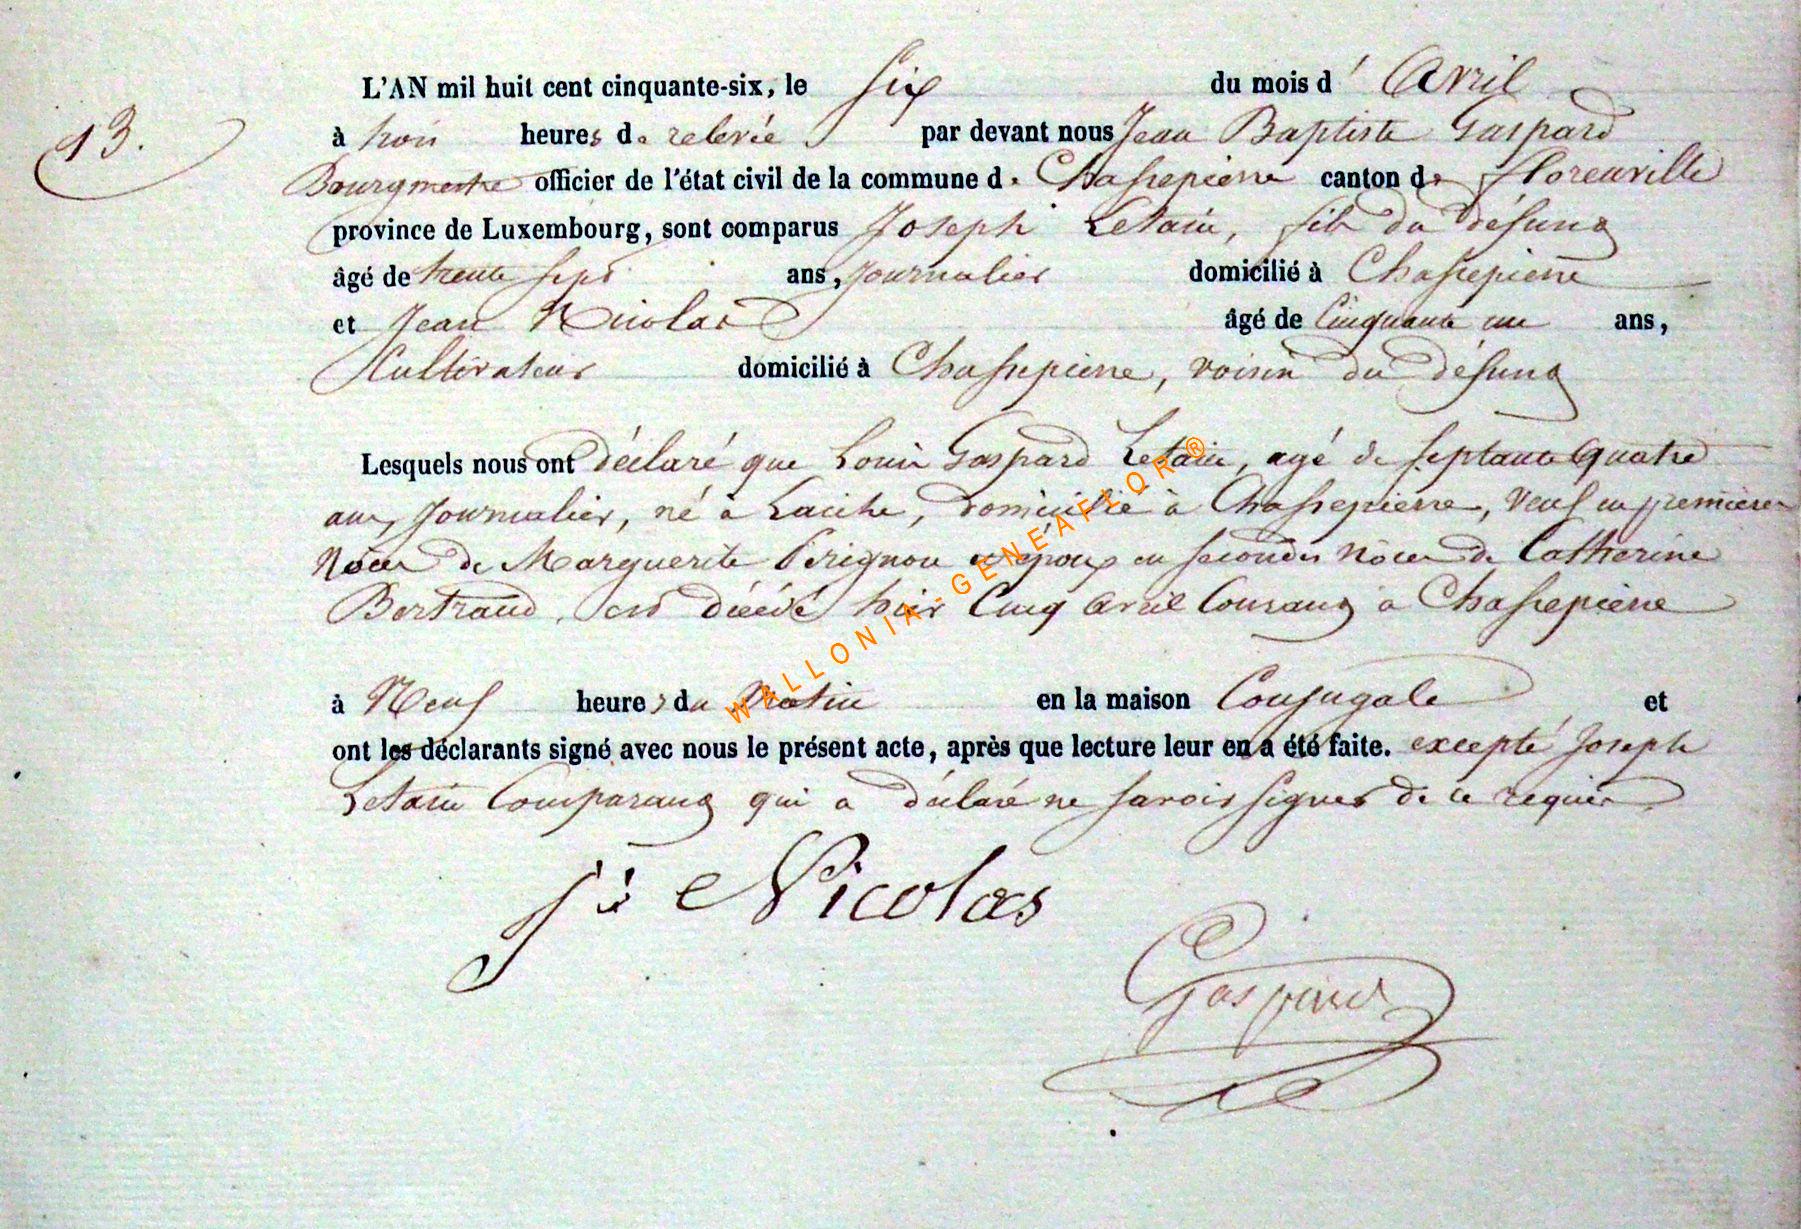 L'AN mil huit cent cinquante-six, le six du mois d' Avril
13. à trois heures de relevée par devant nous Jean Baptiste Gaspard
Bourgmestre officier de l'état civil de la commune de Chassepierre canton de Florenville
province de Luxembourg, sont comparus Joseph Letain, fils du défunt
âgé de trente sept ans, Journalier domicilié à Chassepierre
et Jean Nicolas âgé de Cinquante un ans,
Cultivateur domicilié à Chassepierre, voisin du défunt
Lesquels nous ont déclaré que Louis Gaspard Letain, agé de septante quatre
ans, Journalier, né à Laiche, domicilié à Chassepierre, Veuf en premières
Nôces de Marguerite Pérignon et époux en secondes Nôces de Catherine
Bertrand, est décédé hier Cinq Avril Courant à Chassepierre
à Neuf heures du Matin en la maison Conjugale et
ont les déclarants signé avec nous le présent acte, après que lecture leur en a été faite. excepté Joseph
Letain Comparant qui a déclaré ne savoir signer de ce requis.
J: Nicolas
Gaspard
WALLONIA-GENEAFLOR®